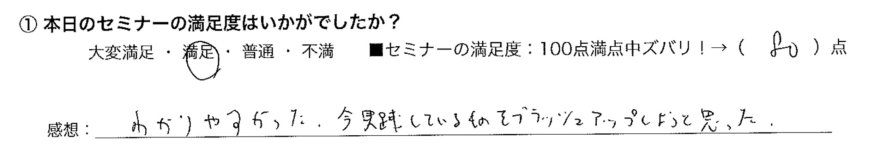 ① 本日のセミナーの満足度はいかがでしたか？
大変満足 ・ 満足 ・ 普通 ・ 不満 ■セミナーの満足度：100点満点中ズバリ！→（ 80 ）点
感想：わかりやすかった. 今実践しているものをブラッシュアップしようと思った.